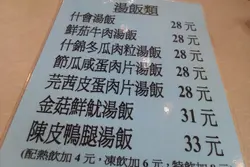 湯飯類
什會湯飯 28 元
鮮茄牛肉湯飯 28 元
什錦冬瓜肉粒湯飯 28 元
節瓜咸蛋肉片湯飯 28 元
芫茜皮蛋肉片湯飯 28 元
金菇鮮魷湯飯 31 元
陳皮鴨腿湯飯 33 元
配熱飲加 4 元，凍飲加 6 元，特飲加